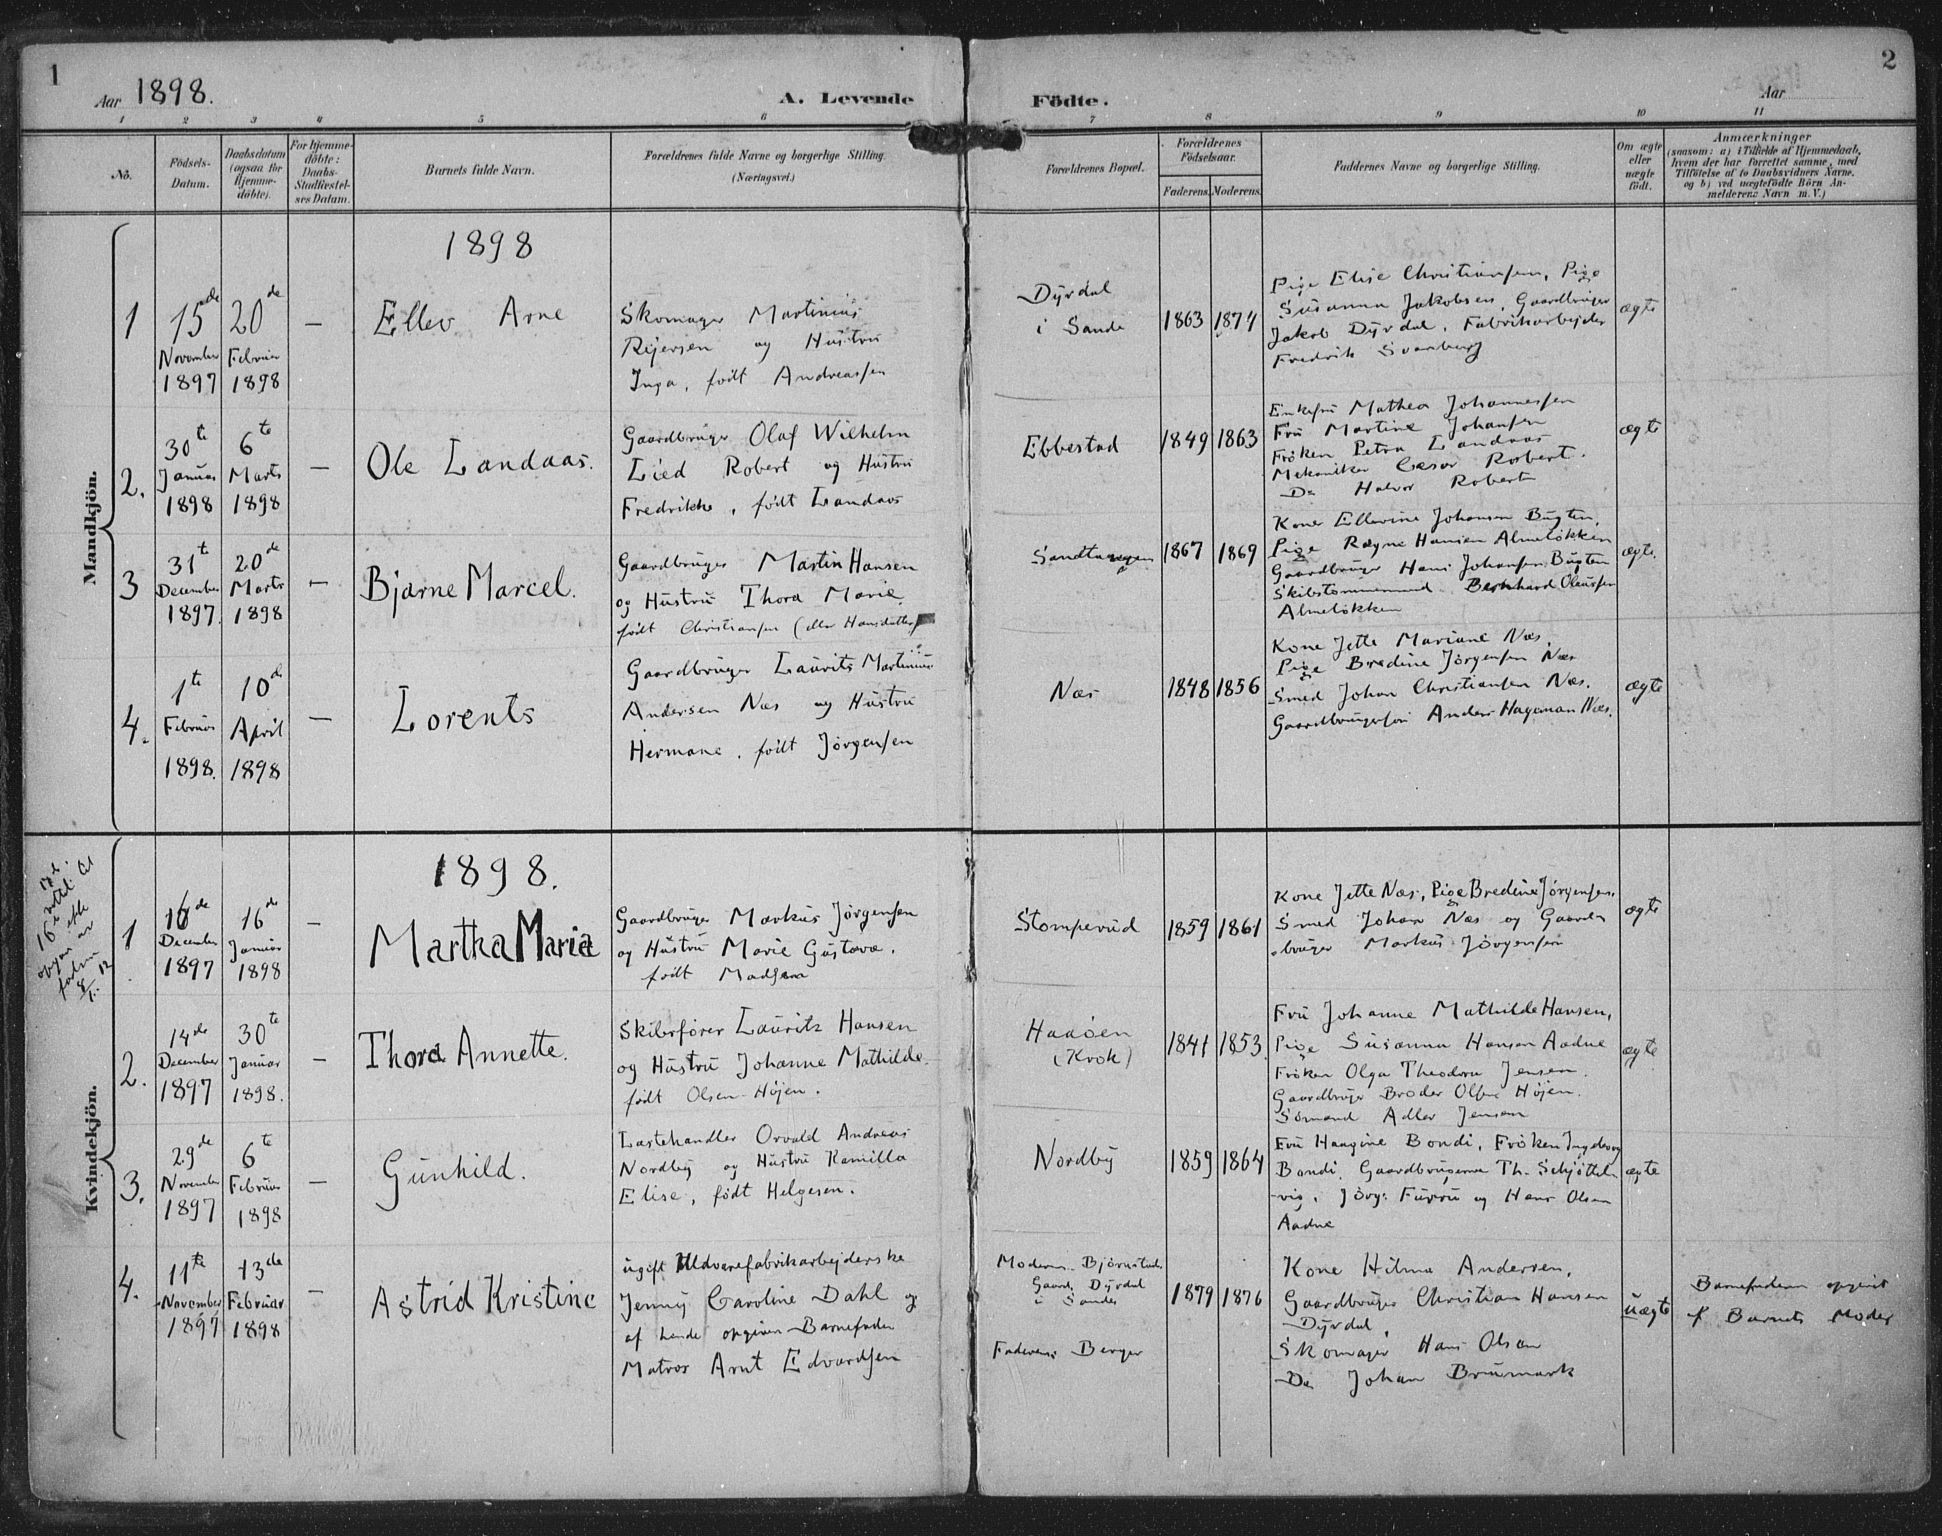 1
Aar 1898.
A. Levende
Födte.
Aar
2
1 2 3 4 5 6 7 8 9 10 11
No.
Födsels-Datum.
Daabsdatum (ogsaa for Hjemme-döbte).
For hjemme-döbte: Daabs-Stadfæstel-ses Datum.
Barnets fulde Navn.
Forældrenes fulde Navne og borgerlige Stilling. (Næringsvei.)
Forældrenes Bopæl.
Forældrenes Födselsaar.
Faderens. Moderens.
Faddernes Navne og borgerlige Stilling.
Om ægte eller uægte födt.
Anmærkninger
(saasom: a) i Tilfælde af Hjemmedaab,
hvem der har forrettet samme, med
Tilföielse af to Daabsvidners Navne,
og b) ved uægtefödte Börn An-
melderens Navn m. V.)
Mandkjön.
1898
1
15de November 1897
20de Februar 1898
—
Ellev Arne
Skomager Martinius
Reiersen og Hustru
Inga, født Andreassen
Dyrdal
i Sande
1863 1874
Pige Elise Christiansen, Pige
Susanna Jakobsen, Gaardbruger
Jakob Dyrdal, Fabrikarbejder
Fredrik Svanberg
ægte
2.
30te Januar 1898
6te Marts 1898
—
Ole Landaas.
Gaardbruger Olaf Wilhelm
Lied Robert og Hustru
Fredrikke, født Landaas
Ebbestad
1849 1863
Enkefru Mathea Johannessen
Fru Martine Johansen
Frøken Petra Landaas
Mekaniker Cæsar Robert.
Do Halvor Robert
ægte
3
31te December 1897.
20de Marts 1898
—
Bjarne Marcel.
Gaardbruger Martin Hansen
og Hustru Thora Marie
født Christiansen (eller Hansdatter)
Sandtangen
1867 1869
Kone Ellevine Johansen Bugten,
Pige Ragne Hansen Almeløkken
Gaardbruger Hans Johansen Bugten
Skibstømmermand Bernhard Olaussen
Almeløkken
ægte.
4.
1te Februar 1898.
10de April 1898
—
Lorents
Gaardbruger Laurits Martinius
Andersen Næs og Hustru
Hermane, født Jørgensen
Næs
1848 1856
Kone Jette Mariane Næs,
Pige Bredine Jørgensen Næs
Smed Johan Christiansen Næs.
Gaardbruger Anders Hageman Næs.
ægte
Kvindekjön.
1898.
1
16de December 1897
16de Januar 1898
—
Martha Maria
Gaardbruger Markus Jørgensen
og Hustru Marie Gustava.
født Madsen
Stomperud
1859 1861
Kone Jette Næs, Pige Bredine Jørgensen,
Smed Johan Næs og Gaard-
bruger Markus Jørgensen
ægte
2.
14de December 1897
30te Januar 1898.
—
Thora Annette.
Skibsfører Lauritz Hansen
og Hustru Johanne Mathilde
født Olsen Højen.
Haaøen
(Krok)
1841 1853.
Fru Johanne Mathilde Hansen,
Pige Susanna Hansen Aadne
Frøken Olga Theodora Jensen.
Gaardbruger Broder Olsen Højen.
Sømand Adler Jensen
ægte
3.
29de November 1897
6te Februar 1898
—
Gunhild.
Lastehandler Osvald Andreas
Nordby og Hustru Kamilla
Elise, født Helgesen.
Nordby
1859 1864
Fru Haagine Bondi, Frøken Ingeborg
Bondi, Gaardbrugerne Th. Schjøtteln
vig, Jørg. Furru og Hans Olsen
Aadne
ægte
4.
11te November 1897
13de Februar 1898
—
Astrid Kristine
ugift Uldvarefabrikarbejderske
Jenny Caroline Dahl og
af hende opgiven Barnefader
Matros Arnt Edvardsen
Moderens Bjørnstad
Gaard, Dyrdal
i Sande
Faderens Berger
1879 1876
Kone Hilma Andersen,
Gaardbruger Christian Hansen
Dyrdal,
Skomager Hans Olsen
Do Johan Brumark
uægte
Barnefaderen opgivet
af Barnets Moder